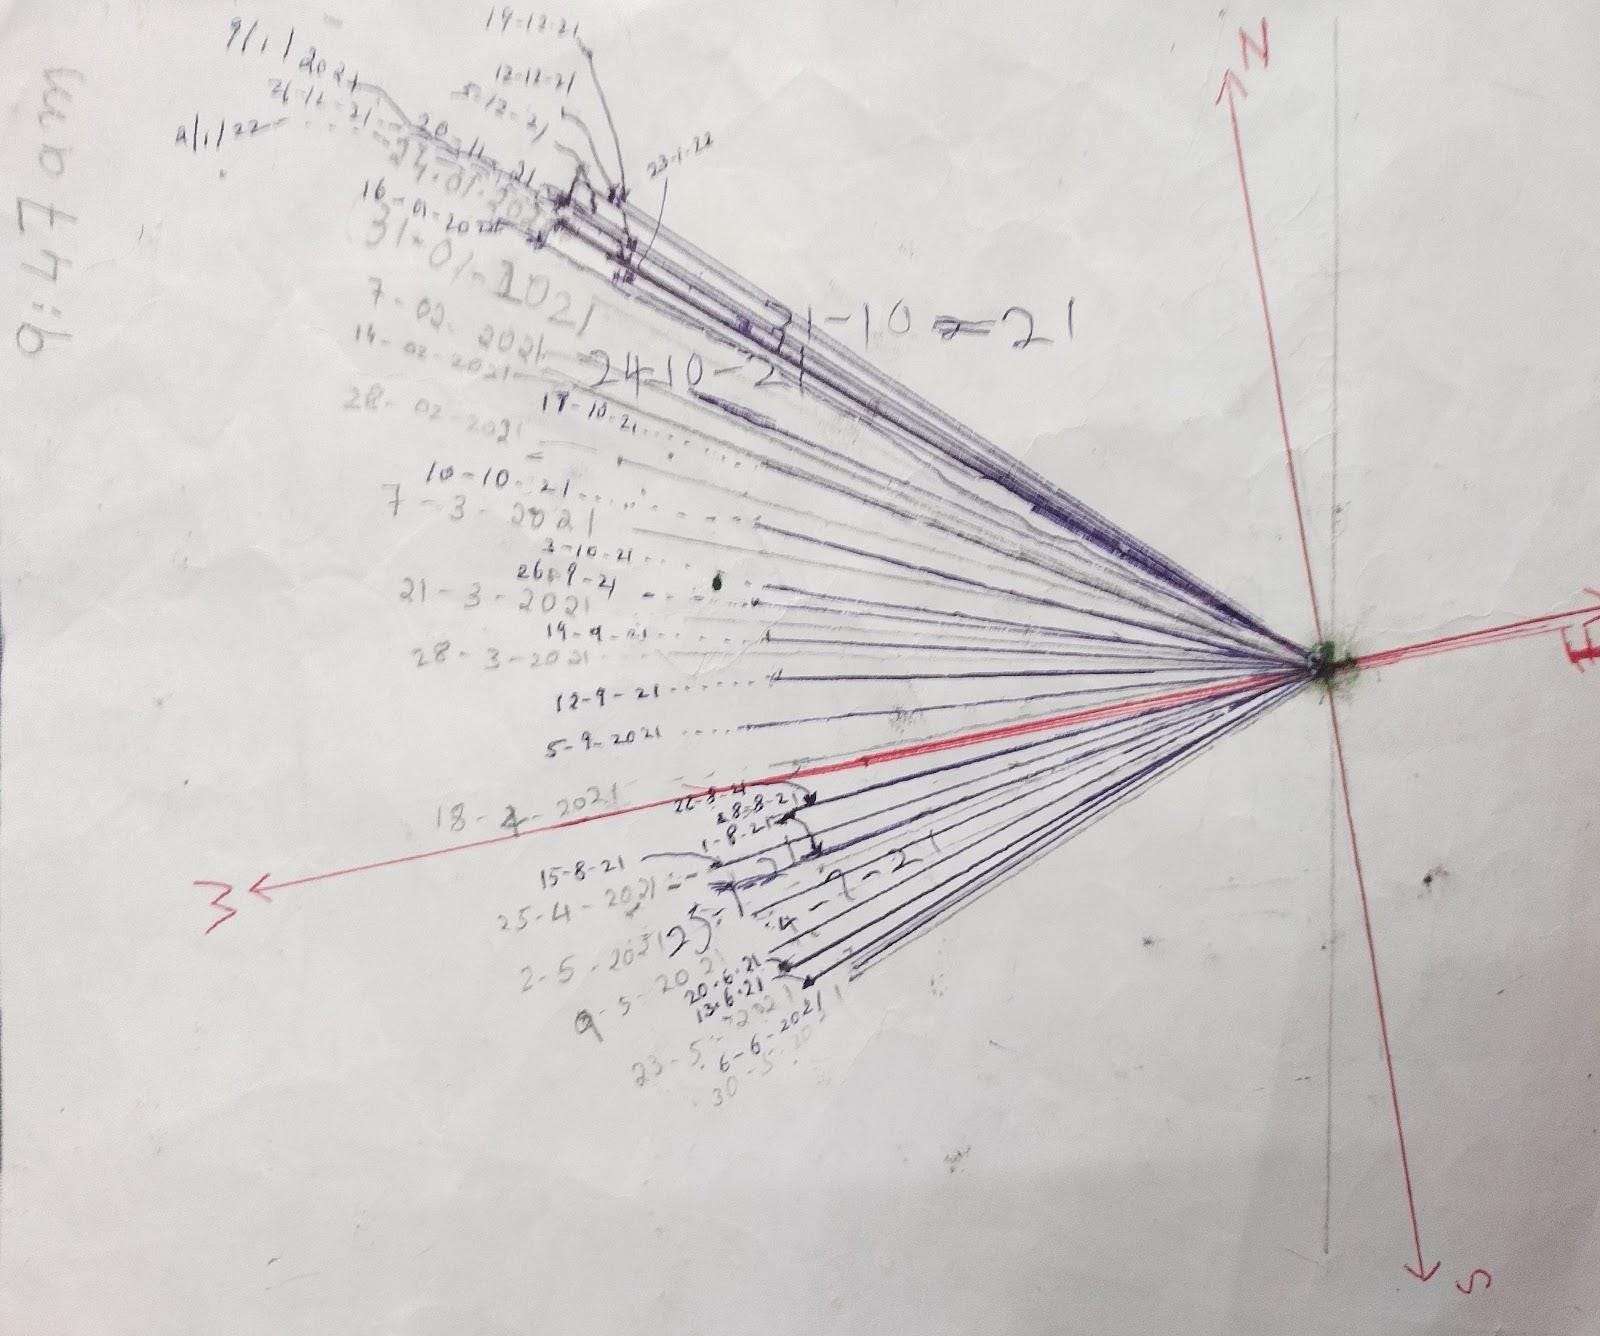 9:47am
N
E
S
W
19-12-21
12-12-21
5-12-21
9/1/2021
26-12-21
20-11-21
23-1-22
24-01-2021
16-01-2022
31-01-2021
31-10-21
7-02-2021
24-10-21
14-02-2021
17-10-21
28-02-2021
10-10-21
7-3-2021
3-10-21
26-9-21
21-3-2021
19-9-21
28-3-2021
12-9-21
5-9-2021
18-4-2021
22-8-21
1-8-21
15-8-21
25-4-2021
2-5-2021
9-5-2021
20-6-21
13-6-21
23-5-2021
6-6-2021